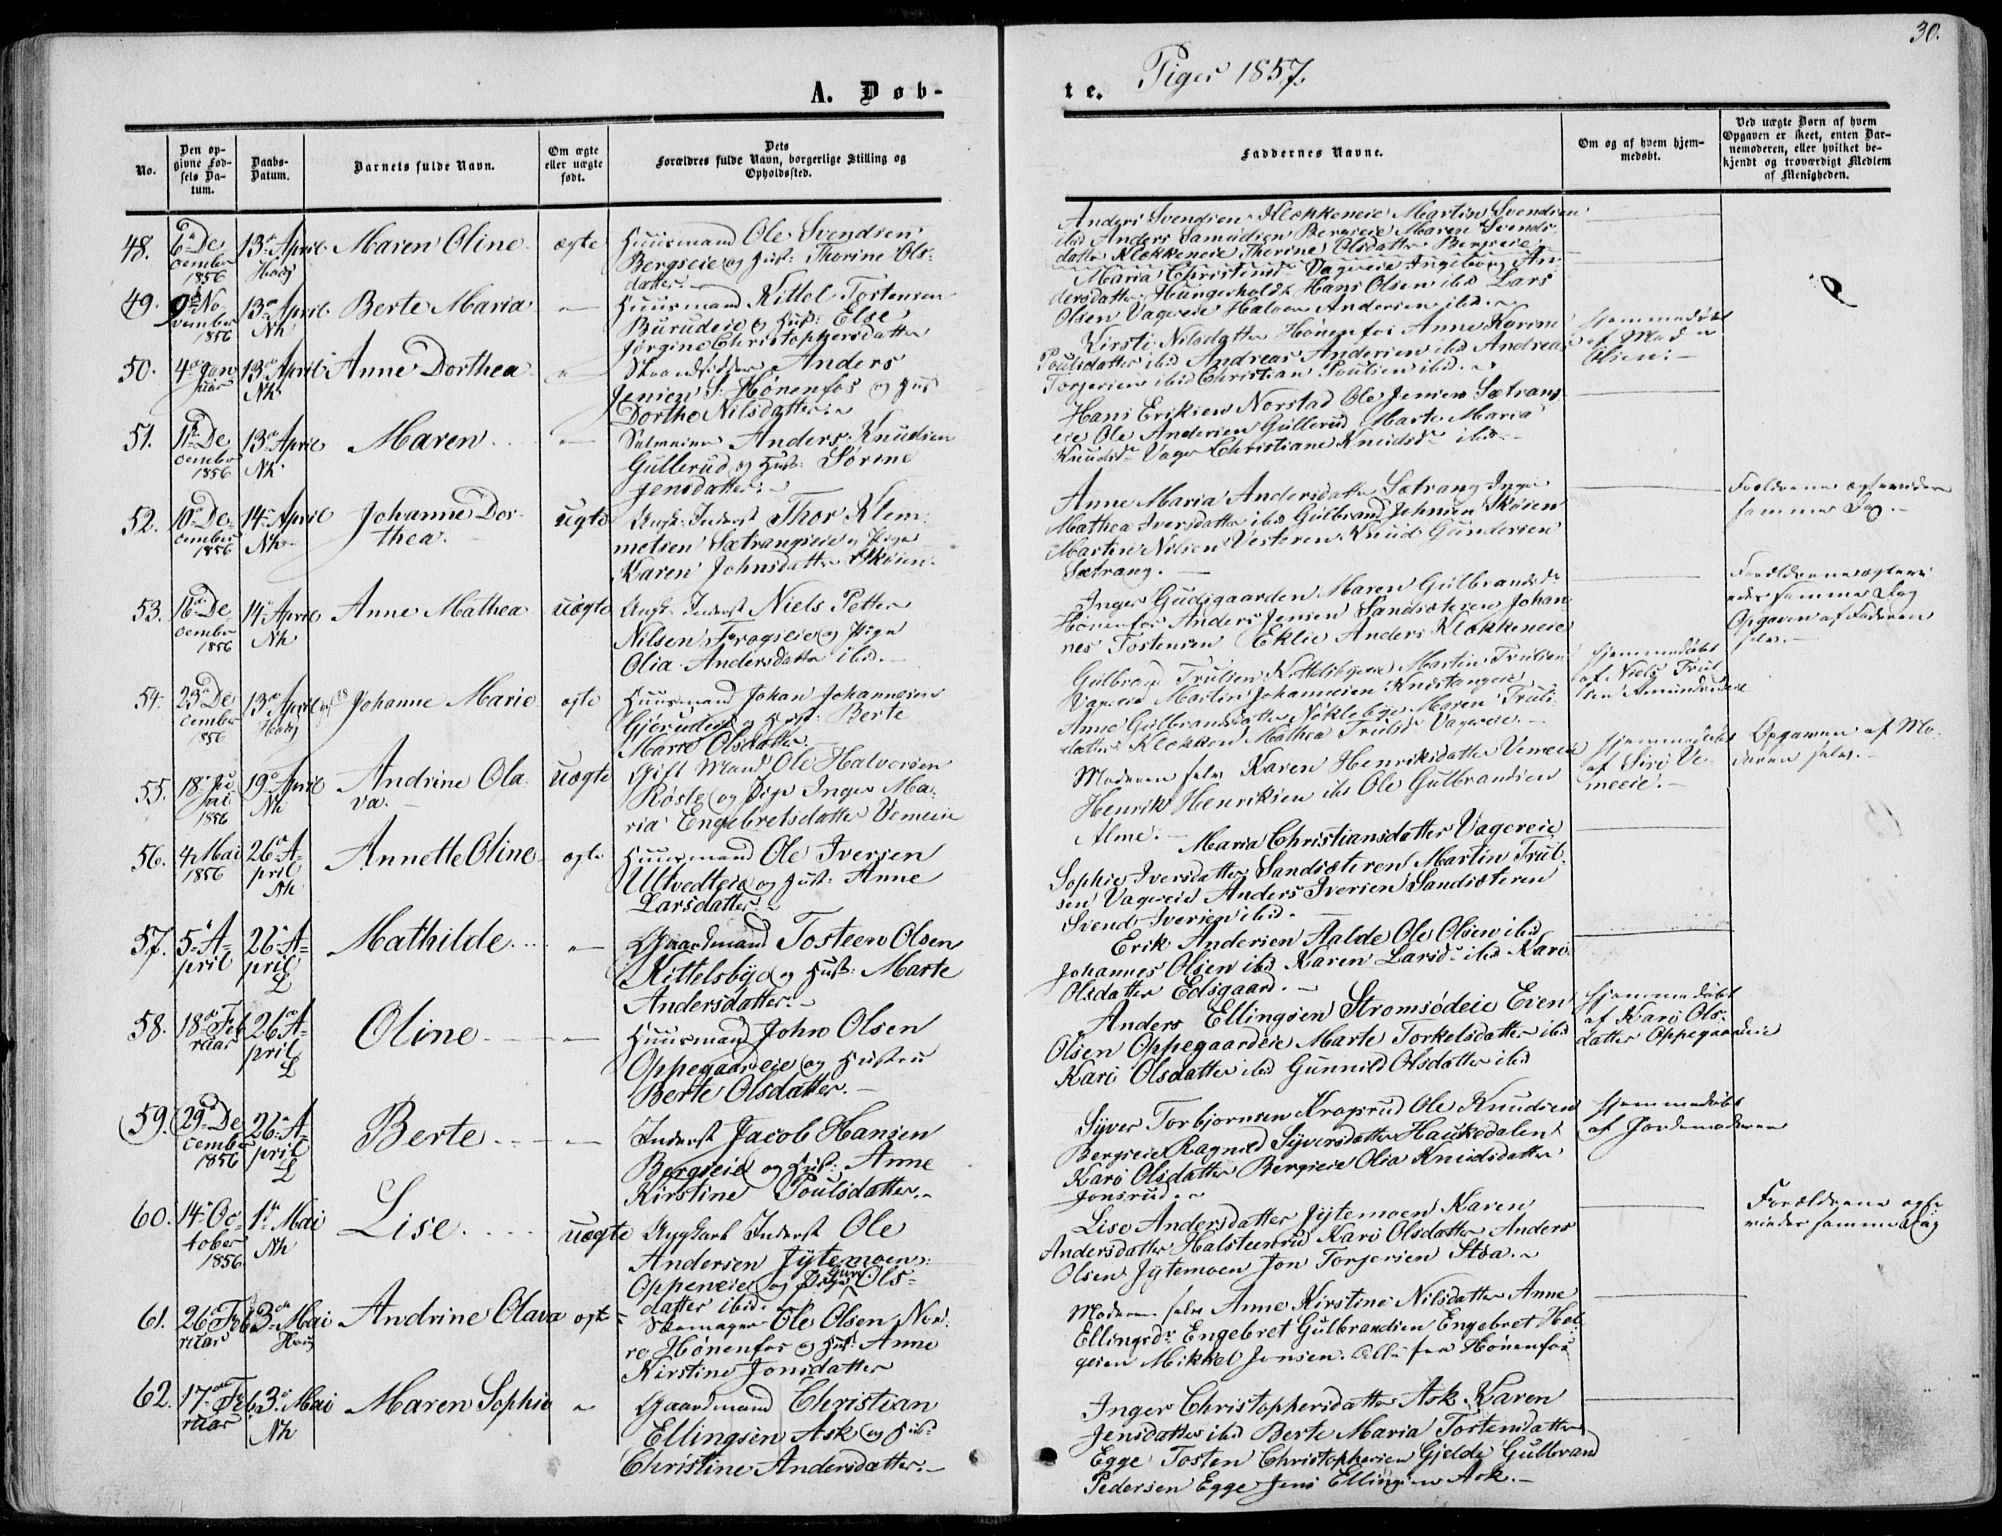 30.
A. Døb-
te. Piger 1857.
No.
Den op-
givne Fød-
sels Da-
tum.
Daabs-
Datum.
Barnets fulde Navn.
Om ægte
eller uægte
født.
Dets
Forældres fulde Navn, borgerlige Stilling og
Opholdssted.
Faddernes Navne.
Om og af hvem hjem-
medøbt.
Ved uægte Børn af hvem
Opgaven er skeet, enten Bar-
nemoderen, eller hvilket be-
kjendt og troværdigt Medlem
af Menigheden.
48. 6 De
cember
1856
13 April
Hovg
Maren Oline
ægte
Huusmand Ole Svendsen
Bergseie og Hust: Thorine Ols-
datter.
Anders Svendsen Klækkeneie Martin Svendsen
ibid Anders Samudsen Bergseie Maren Svends
datter Klækkeneie Thorine Olsdatter Bergseie
49. 9 No
vember
1856
13 April
Nh
Berte Maria
Huusmand Kittel Tostensen
Burudeie og Hust: Else
Jørgine Christophersdatter
Maria Christensd Vagereie Ingeborg An-
dersdatter Hungerholdt Hans Olsen ibid Lars
Olsen Vagereie Halvor Andersen ibid
50. 4 Jan
uar
13 April
Nh
Anne Dorthea
Strandsidder Anders
Jensen S. Hønenfos og Hust
Dorthe Nilsdatter
Kirsti Nilsdatter Hønenfos Anne Karine
Poulsdatter ibid Andreas Andersen ibid Andreas
Torjersen ibid Christian Poulsen ibid
Hjemmedøbt
af Mad
Olsen
51. 11 De
cember
1856
13 April
Nh
Maren
Anders Knudsen
Gullerud og Hust: Sørine
Jensdatter
Hans Eriksen Norstad Ole Jensen Sætrang
eie Ole Andersen Gullerud Marte Maria
Knudsd Vager Christiane Knudsd ibid
52. 10 De-
cember
1856
14 April
Nh
Johanne Dor-
thea.
uægte
Ungk: Inderst Thor Klem-
metsen Sætrangseie og Pige
Karen Johnsdatter Skøien.
Anne Maria Andersdatter Sætrang Inger
Mathea Iversdatter ibid Gulbrand Johnsen Skøien
Martin Nilsen Vesteren Knud Gundersen
Sætrang.
Forældrene ægteviedes
samme Dag.
53. 16 De
cember
1856
14 April
Nh
Anne Mathea
uægte
Ungk: Inderst Niels Petter
Nilsen Fragseie og Pige
Olia Andersdatter ibid.
Inger Gudsgaarden Maren Gulbrandsd
Hønenfos Anders Jensen Sandsæteren Johan
nes Tostensen Eklie Anders Klækkeneie
Forældrene ægtevi
edes samme Dag
Opgaven af Faderen
selv.
54. 23 De
cember
1856
13 April
Hovg
Johanne Marie
ægte
Huusmand Johan Johannesen
Gjørudeie og Hust: Berte
Marie Olsdatter
Gulbrand Trulsen Kittelsbyeie Martin Trulsen
Vagereie Martin Johannesen Knestangeie
Anne Gulbrandsdatter Nøkleby Maren Truls
datter Klækken Mathea Trulsd Vagereie.
Hjemmedøbt
af Niels Trul
sen Amundrudeie
55. 18 Ju
ni
1856
19 April
Nh
Andrine Ola
va.
uægte
Gift Mand Ole Halvorsen
Røste og Pige Inger Ma-
ria Engebretsdatter Vemeie
Moderen selv Karen Henriksdatter Vemeeie
Henrik Henriksen ibid Ole Gulbrandsen
Alme.
Hjemmedøbt
af Siri Ve-
meeie.
Opgaven af Mo-
deren selv.
56. 4 Mai
1856
26 A-
pril
Nh
Annette Oline
ægte
Huusmand Ole Iversen
Ultvedteie og Hust: Anne
Larsdatter
Maria Christiansdatter Vagereie
Sophie Iversdatter Sandsæteren Martin Trul-
sen Vagereie Anders Iversen Sandsæteren
Svend Iversen ibid.
57. 5 A-
pril
26 A-
pril
L
Mathilde
Gaardmand Tosteen Olsen
Kittelsbye og Hust: Marte
Andersdatter.
Erik Andersen Aalde Ole Olsen ibid
Johannes Olsen ibid Karen Larsd ibid Kari
Olsdatter Edsgaard.
58. 18 Feb
ruar
26 A-
pril
L
Oline
Huusmand John Olsen
Oppegaardeie og Hustru
Berte Olsdatter.
Anders Ellingsen Stromsødeie Even
Olsen Oppegaardeie Marte Torkelsdatter ibid
Kari Olsdatter ibid Gunnild Olsdatter ibid
Hjemmedøbt
af Kari Ols-
datter Oppegaardeie
59. 29 De
cember
1856
26 A-
pril
L
Berte
Inderst Jacob Hansen
Bergseie og Hust: Anne
Kirstine Poulsdatter.
Syver Torbjornsen Kragsrud Ole Knudsen
Bergseie Ragnild Syversdatter Haukedalen
Kari Olsdatter Bergseie Olia Knudsdatter
Jonsrud
Hjemmedøbt
af Jordemoderen
60. 14 Oc-
tober
1856
1 Mai
Nh
Lise
uægte
Ungkarl Inderst Ole
Andersen Jytemoen
Oppeneie og Pige Guri Ols-
datter ibid.
Lise Andersdatter Jytemoen Karen
Andersdatter Halsteenrud Kari Olsdatter Anders
Olsen Jytemoen Jon Torjersen Stoa.
Forældrene ægte
viedes samme Dag
61. 26 Feb
ruar
3 Mai
Hovg
Andrine Olava
ægte
Skomager Ole Olsen Nor-
re Hønenfos og Hust Anne
Kirstine Jonsdatter
Moderen selv Anne Kirstine Nilsdatter Anne
Ellingsdr Engebret Gulbrandsen Engebret Hel
gesen Mikkel Jensen. Alle fra Hønenfos
62. 17 Feb
ruar
3 Mai
Nh
Maren Sophie
Gaardmand Christian
Ellingsen Ask og Hust
Christine Andersdatter.
Inger Christophersdatter Ask Karen
Jensdatter ibid Berte Maria Tostensdatter
Egge Tosten Christophersen Gjelde Gulbrand
Pedersen Egge Jens Ellingsen Ask.